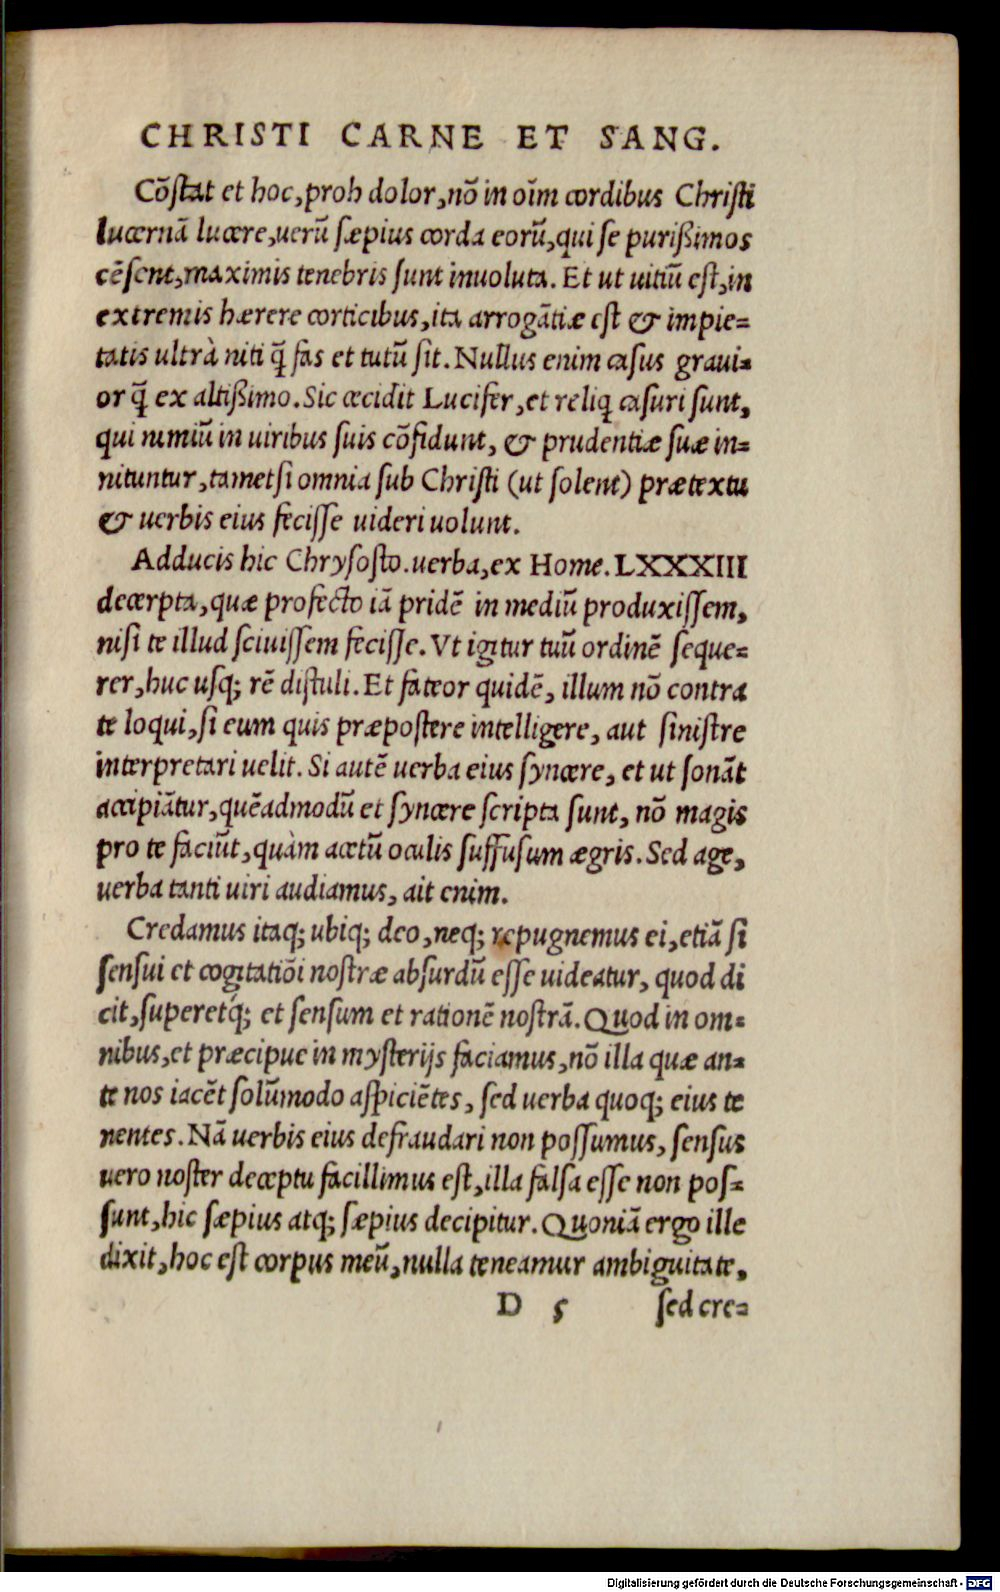 CHRISTI CARNE ET SANG.
Cōſtat et hoc, proh dolor, nō in oīm cordibus Chriſti
lucernā lucere, uerū ſæpius corda eorū, qui ſe purißimos
cēſent, maximis tenebris ſunt inuoluta. Et ut uitiū eſt, in
extremis hærere corticibus, ita arrogātiæ eſt & impie=
tatis ultrà niti q̄ fas et tutū ſit. Nullus enim caſus graui=
or q̄ ex altißimo. Sic cecidit Lucifer, et reliq caſuri ſunt,
qui nimiū in uiribus ſuis cōfidunt, & prudentiæ ſuæ in=
nituntur, tametſi omnia ſub Chriſti (ut ſolent) prætextu
& uerbis eius feciſſe uideri uolunt.
Adducis hic Chryſoſto. uerba, ex Home. LXXXIII
decerpta, quæ profecto iā pridē in mediū produxiſſem,
niſi te illud ſciuiſſem feciſſe. Vt igitur tuū ordinē ſeque=
rer, huc uſq; rē diſtuli. Et fateor quidē, illum nō contra
te loqui, ſi eum quis præpoſtere intelligere, aut ſiniſtre
interpretari uelit. Si autē uerba eius ſyncere, et ut ſonāt
accipiātur, quēadmodū et ſyncere ſcripta ſunt, nō magis
pro te faciūt, quàm acetū oculis ſuffuſum ægris. Sed age,
uerba tanti uiri audiamus, ait enim.
Credamus itaq; ubiq; deo, neq; repugnemus ei, etiā ſi
ſenſui et cogitatiōi noſtræ abſurdū eſſe uideatur, quod di
cit, ſuperetq́; et ſenſum et rationē noſtrā. Quod in om=
nibus, et præcipue in myſterijs faciamus, nō illa quæ an=
te nos iacēt ſolūmodo aſpiciētes, ſed uerba quoq; eius te
nentes. Nā uerbis eius defraudari non poſſumus, ſenſus
uero noſter deceptu facillimus eſt, illa falſa eſſe non poſ=
ſunt, hic ſæpius atq; ſæpius decipitur. Quoniā ergo ille
dixit, hoc eſt corpus meū, nulla teneamur ambiguitate,
D 5 ſed cre=
Digitalisierung gefördert durch die Deutsche Forschungsgemeinschaft - DFG